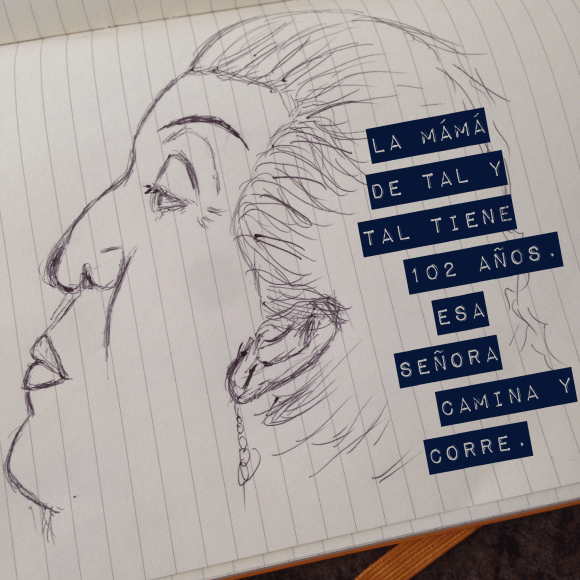 LA MÁMÁ
DE TAL Y
TAL TIENE
102 AÑOS.
ESA
SEÑORA
CAMINA Y
CORRE.